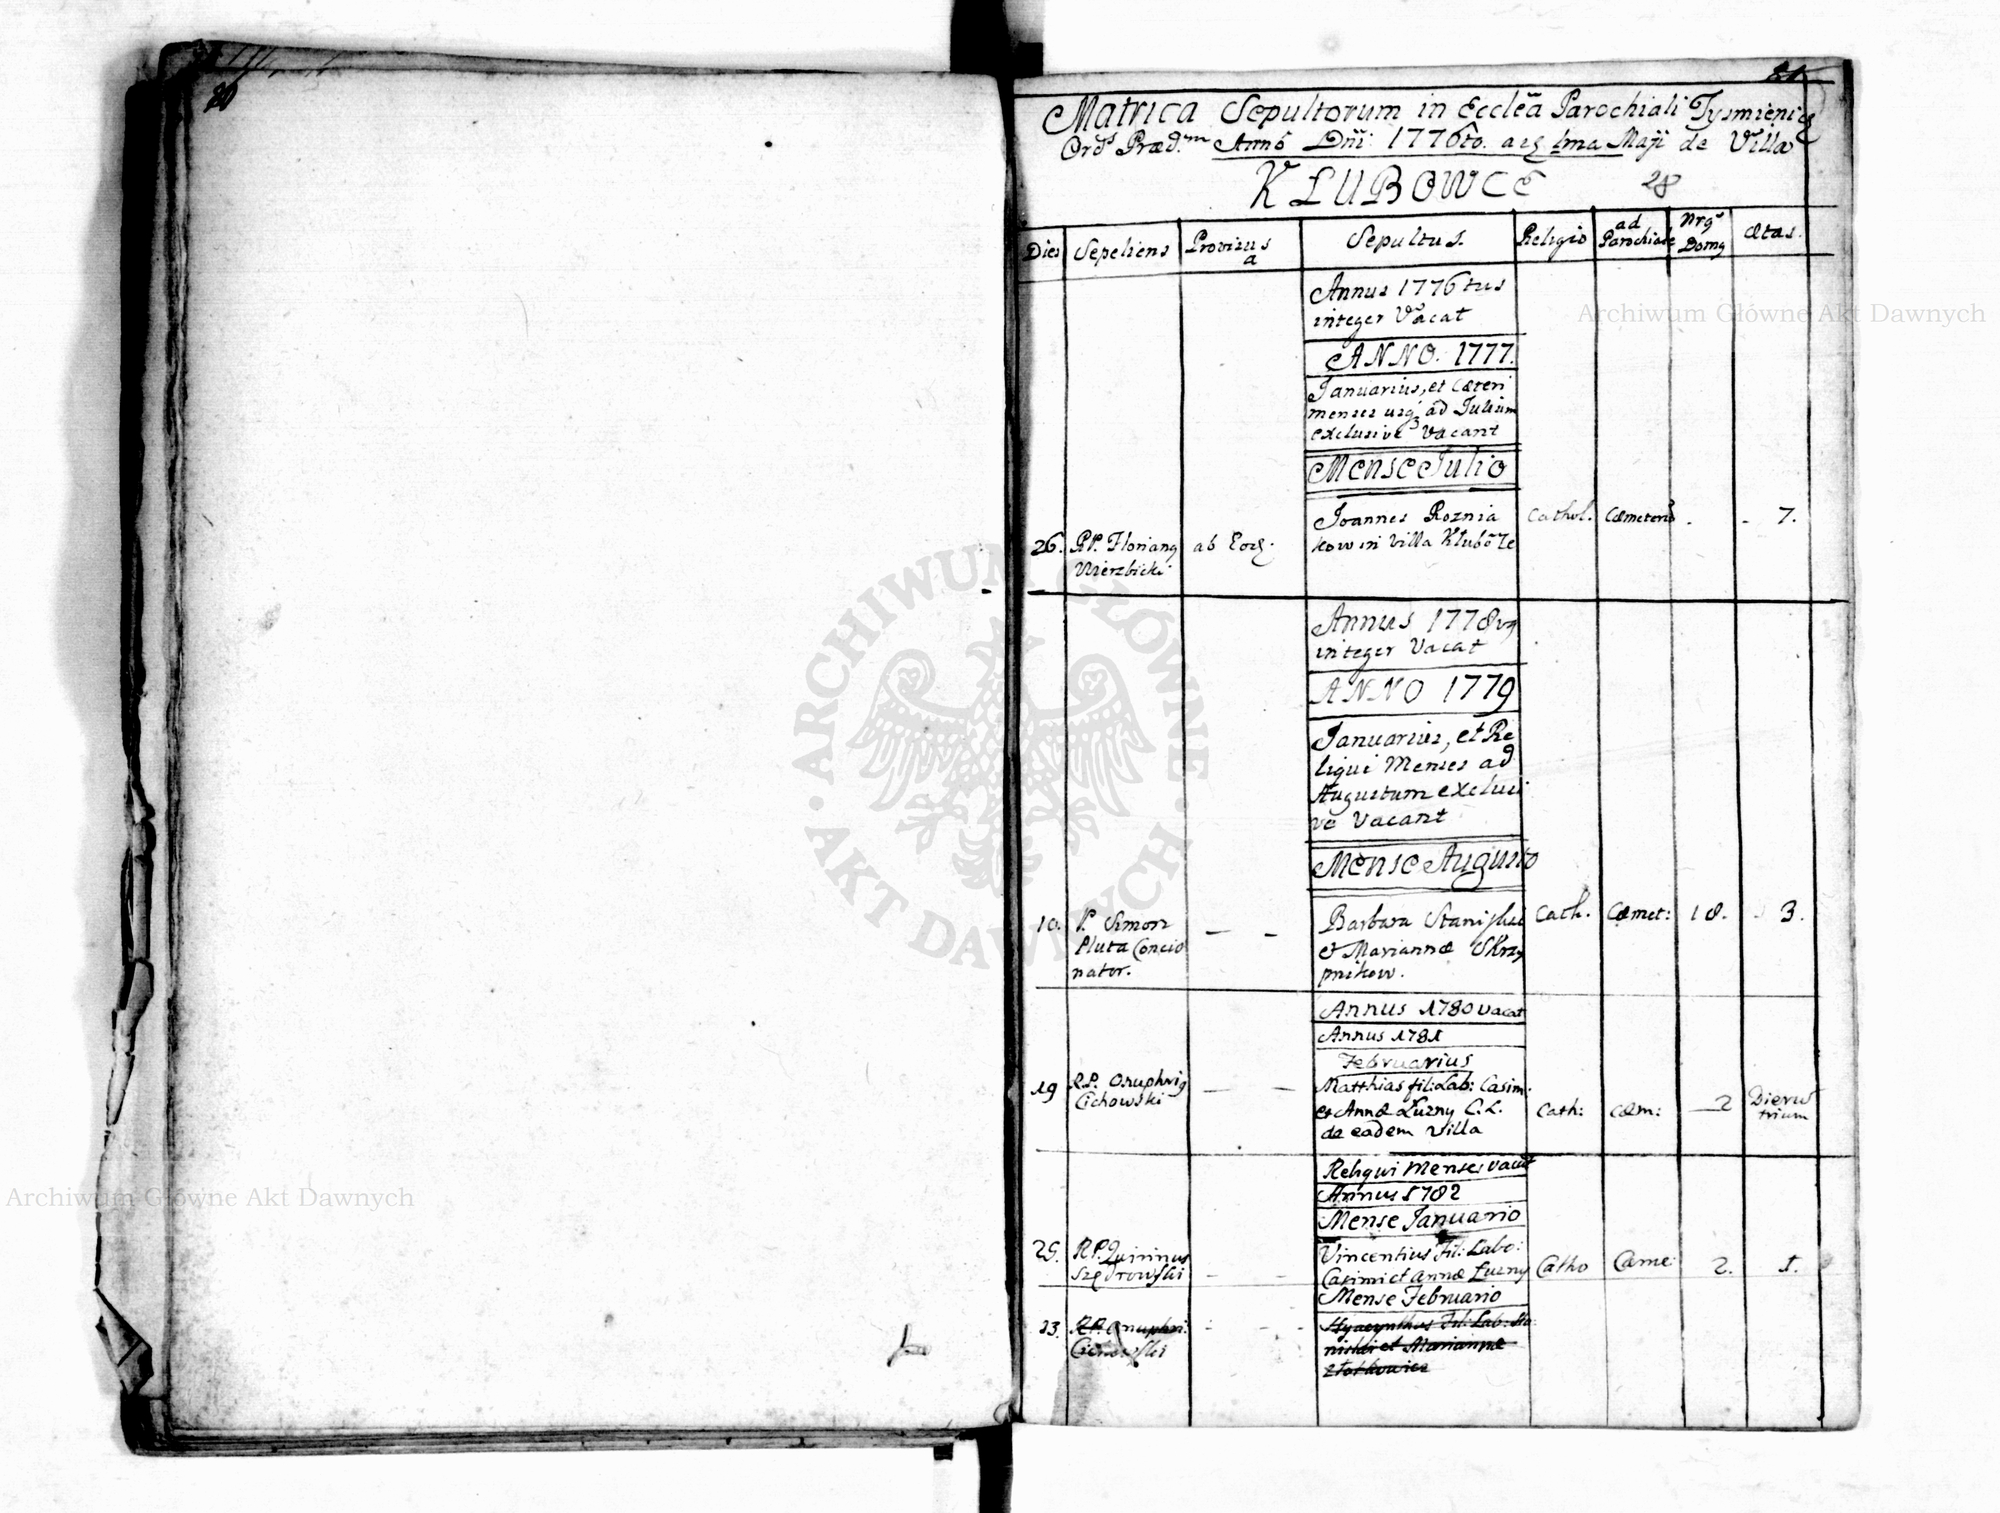 80
81
Matrica Sepultorum in Ecclēa Parochiali Tysmienicę
Ords Præd.m Annô Dni: 1776to. a 1ma Maji de Villa
KLUBOWCE 28
Dies Sepeliens Provisus a Sepultus. Religio ad Parochiale Nrg Domg ætas.
Annus 1776tus
integer Vacat
ANNO. 1777.
Januarius, et cæteri
menses usq ad Julium
exclusive Vacant
Mense Julio
26. RP. Floriang ab Eod: Joannes Roznia Cathol. Cæmeteriū - - 7.
Wierzbicki kow in villa Klubôze
Annus 1778vg
integer Vacat
ANNO 1779
Januarius, et Re
liqui Menses ad
Augustum exclusi
ve Vacant
Mense Augusto
10. P. Simon — — Barbara Stanislai Cath. Cæmet: 18. 3.
Pluta Concio & Mariannæ Skrzy
nator. pnikow.
Annus 1780 vacat
Annus 1781
Februarius
19 R.P. Onuphrig — — Matthias fil: Lab: Casim:
Cichowski et Annæ Luzny C.L. Cath: Cæm: — 2 Dierū
de eadem Villa trium
Reliqui Menses vacāt
Annus 1782
Mense Januario
25. RP. Quirinus Vincentius Fil: Labo:
Szędrowski - - Casimi et Annæ Luzny Catho Cæme: 2. 1.
Mense Februario
13. RP. Onuphri: - - - Hyacynthus Fil: Lab: Sta
Cichowski nislai et Mariannæ
Archiwum Główne Akt Dawnych
Archiwum Główne Akt Dawnych
ARCHIWUM GŁÓWNE · AKT DAWNYCH ·